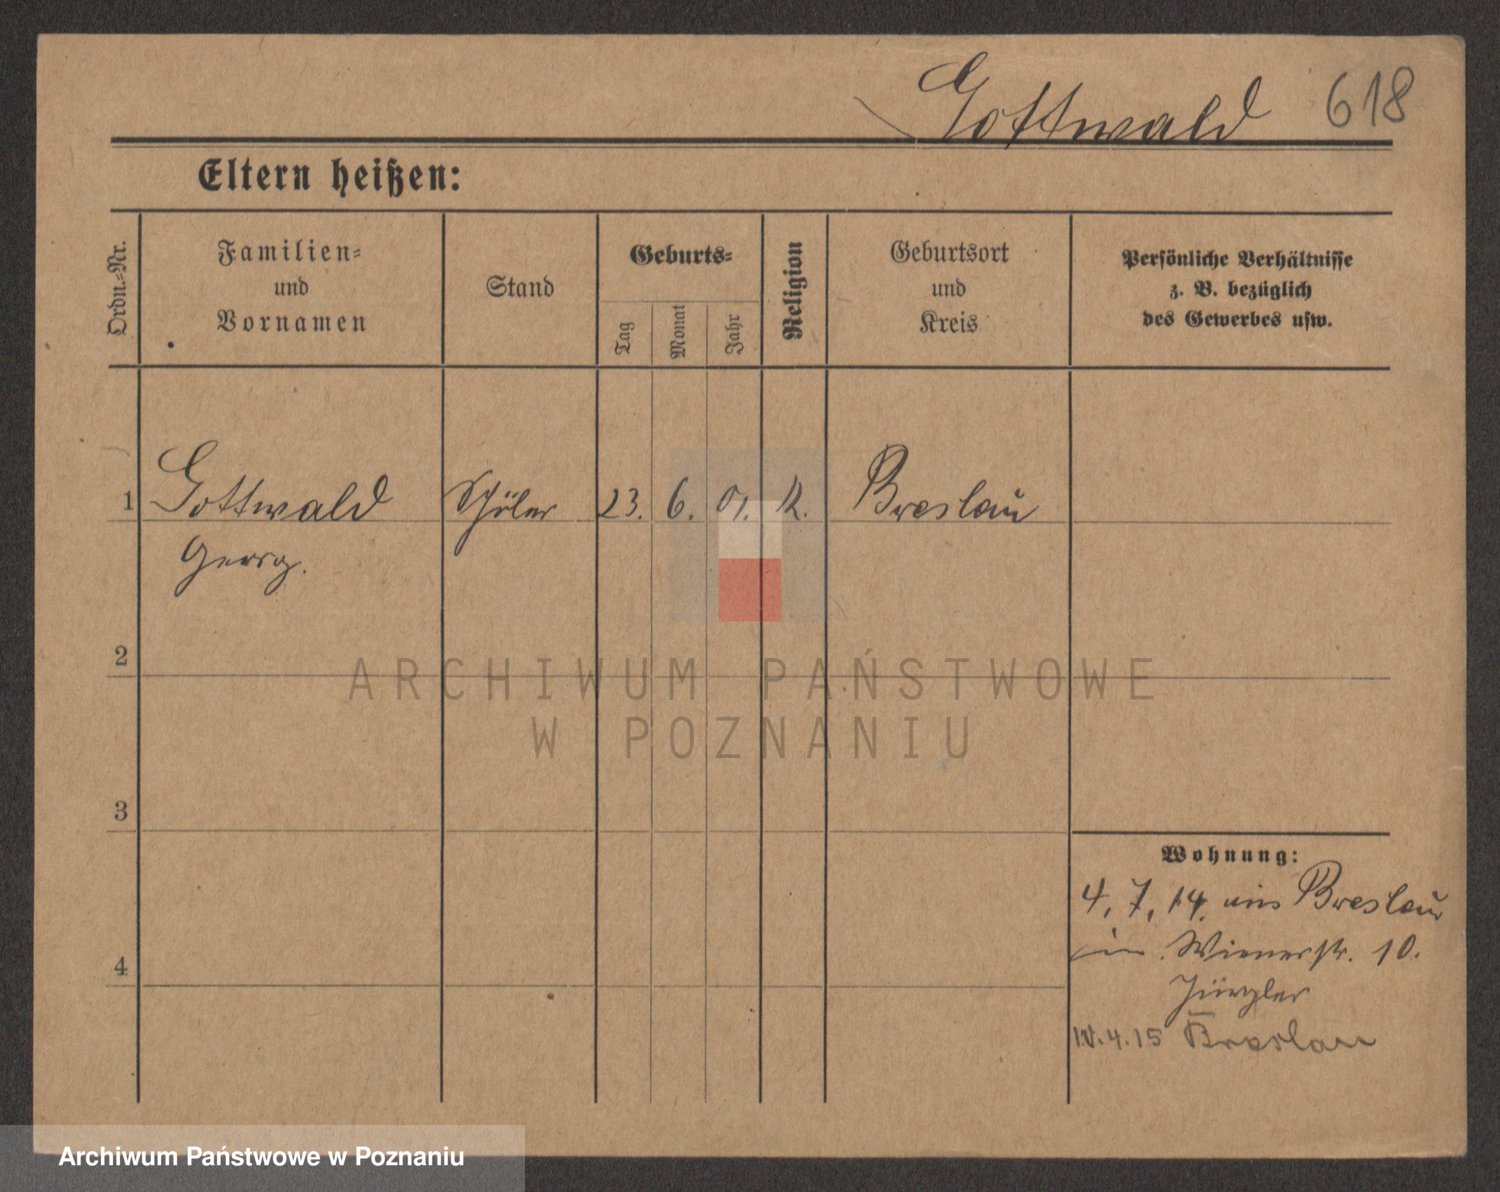 Gottwald 618
Eltern heißen:
Ordn.-Nr.
Familien-
und
Vornamen
Stand
Geburts-
Tag
Monat
Jahr
Religion
Geburtsort
und
Kreis
Persönliche Verhältnisse
z. B. bezüglich
des Gewerbes usw.
1 Gottwald Schüler 23. 6. 01. K. Breslau
Georg.
2
3
4
Wohnung:
4. 7. 14. aus Breslau
in. Wienerstr. 10.
4.15 Breslau
ARCHIWUM PAŃSTWOWE
W POZNANIU
Archiwum Państwowe w Poznaniu